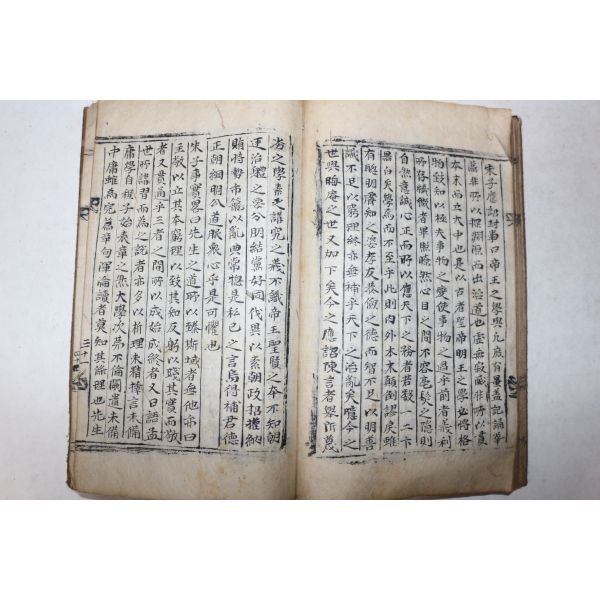 朱子應詔封事曰帝王之學與凡庶有異盖記誦華
藻非所以探淵源而出治道也虛無寂滅非所以貫
本末而立大中也是以古者聖帝明王之學必將格
物致知以極夫事物之變使事物之過乎前者義利
所存纖微者畢照瞭然心目之間不容毫髮之隱則
自然意誠心正而所以應天下之務者若數一二卞
黑白矣學焉而不至乎此則內外本末顛倒謬戾雖
有聰明睿知之
孝友恭儉之德而智不足以明善
識不足以窮理終亦無補乎天下之治亂矣噫今之
世與晦庵之世又加下矣今之應詔陳言者擧所蔑
省之學素
講究之義不識帝王聖賢之本不知朝
運治體之要分朋結黨好同伐異以紊朝政招權納
賄時勢市寵以亂典常惣是私己之言烏得補君德
正朝綱明公道服衆心乎是可懼也
朱子事實畧曰先生之道所以臻斯域者無他亦曰
主敬以立其本窮理以致其知反躬以踐其實而敬
者又貫通乎三者之間所以成始成終者又曰語孟
世所講習而爲之說者亦多以析理未精擇言未備
庸學自程子始表章之然大學次第不倫闕遺未備
中庸雖爲完篇章句渾淪讀者莫知其條理也先生